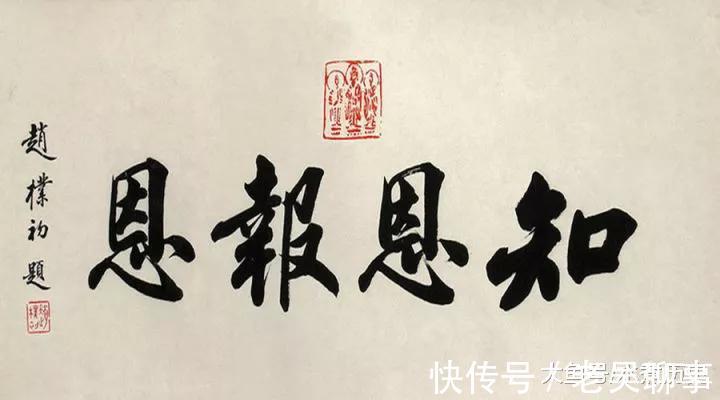 知恩報恩
趙樸初題
快传号/老吴聊事